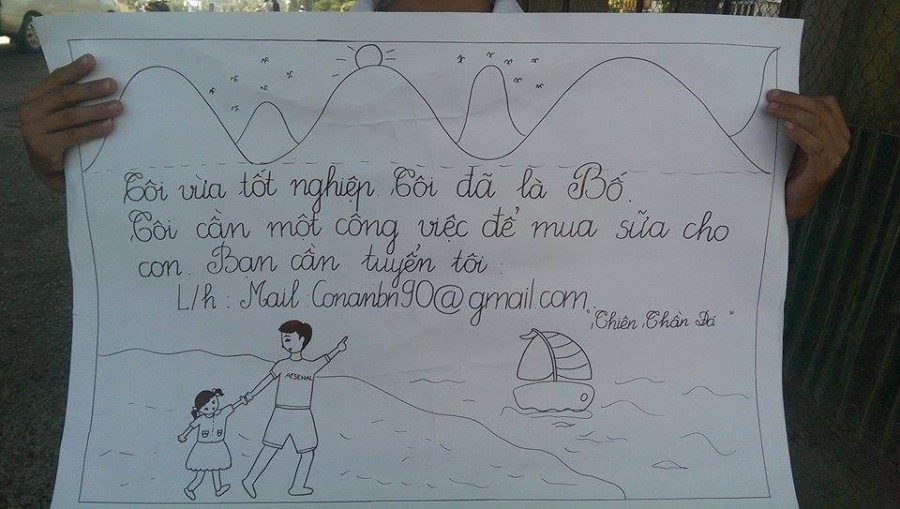 Tôi vừa tốt nghiệp. Tôi đã là Bố.
Tôi cần một công việc để mua sữa cho
con. Bạn cần tuyển tôi :
L/h : Mail : Conanbn90@gmail.com.
"Thiên Thần Đá"
ARSENAL